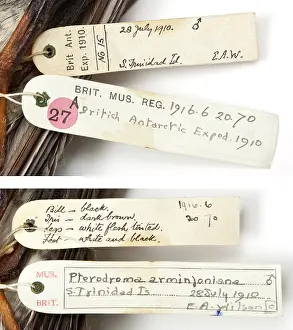 Brit Ant.
Exp. 1910.
No 15
28 July 1910. ♂
S. Trinidad Isl. E.A.W.
BRIT. MUS. REG. 1916.6 20.70
A
27
British Antarctic Exped. 1910
Bill – black. 1916.6
Iris – dark brown. 20 70
Legs – white flesh tinted.
Feet – white and black.
MUS.
BRIT.
Pterodroma arminjoniana ♂
S. Trinidad Is. 28 July 1910
E.A. Wilson